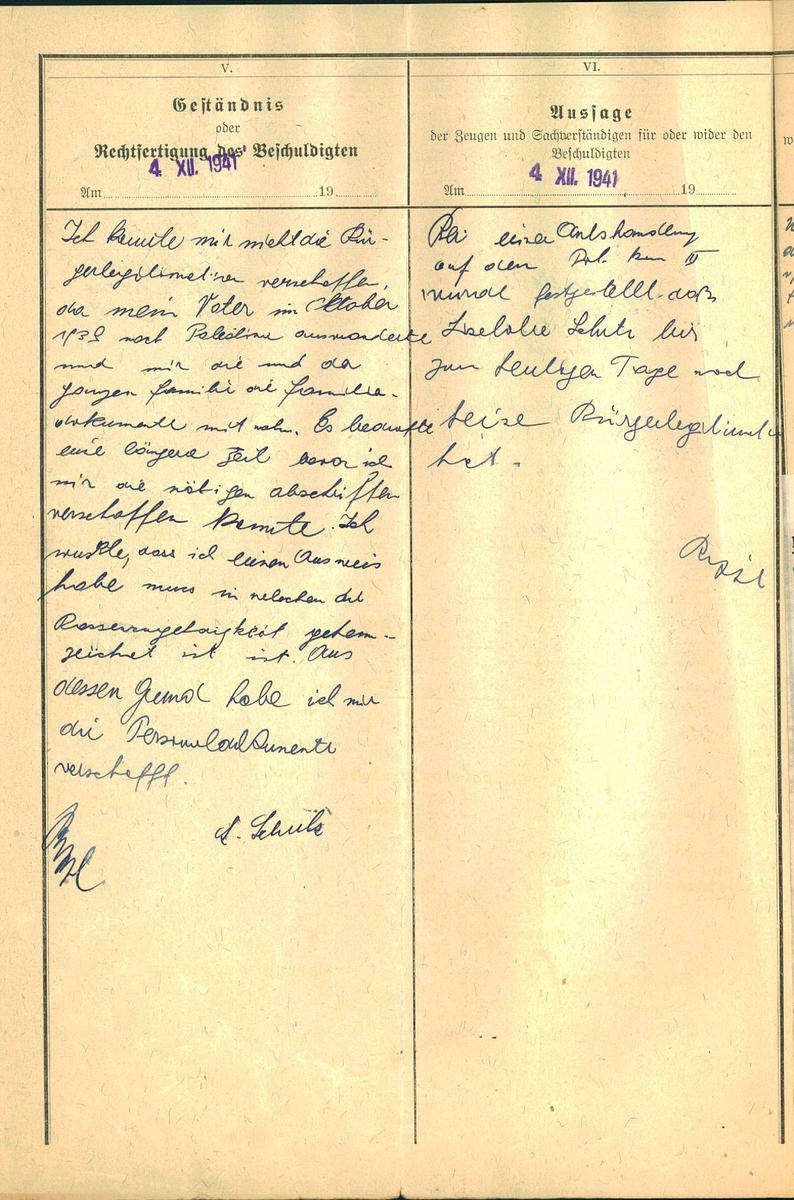 V.
Geständnis
oder
Rechtfertigung des Beschuldigten
4. XII. 1941
Am 19
Ich konnte mir nicht die Bür-
gerlegitimation verschaffen,
da mein Vater im Oktober
1939 nach Palestina auswanderte
und mir die und da
ganzen familie die familie-
dokumente mit nahm. Es bedurfte
eine längere Zeit bevor ich
mir die nötigen abschriften
verschaffen konnte. Ich
wusste, dass ich einen Ausweis
habe muss in welchen die
Rassenzugehörigkeit geken-
zeichnet ist ist. Aus
dessen Grund habe ich mir
die Personaldokumente
verschafft.
Schulz
VI.
Aussage
der Zeugen und Sachverständigen für oder wider den
Beschuldigten
4 XII. 1941
Am 19
Bei einer Amtshandlung
auf den Pol. Kom III
wurde festgestellt daß
Liselotte Schulz bis
zum heutigen Tage noch
keine Bürgerlegitimation
hat.